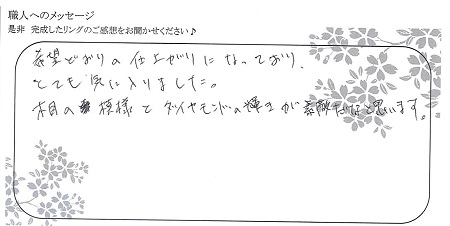 職人へのメッセージ
是非 完成したリングのご感想をお聞かせください♪
希望どおりの仕上がりになっており、
とても気に入りました。
木目の模様とダイヤモンドの輝きが素敵だなと思います。